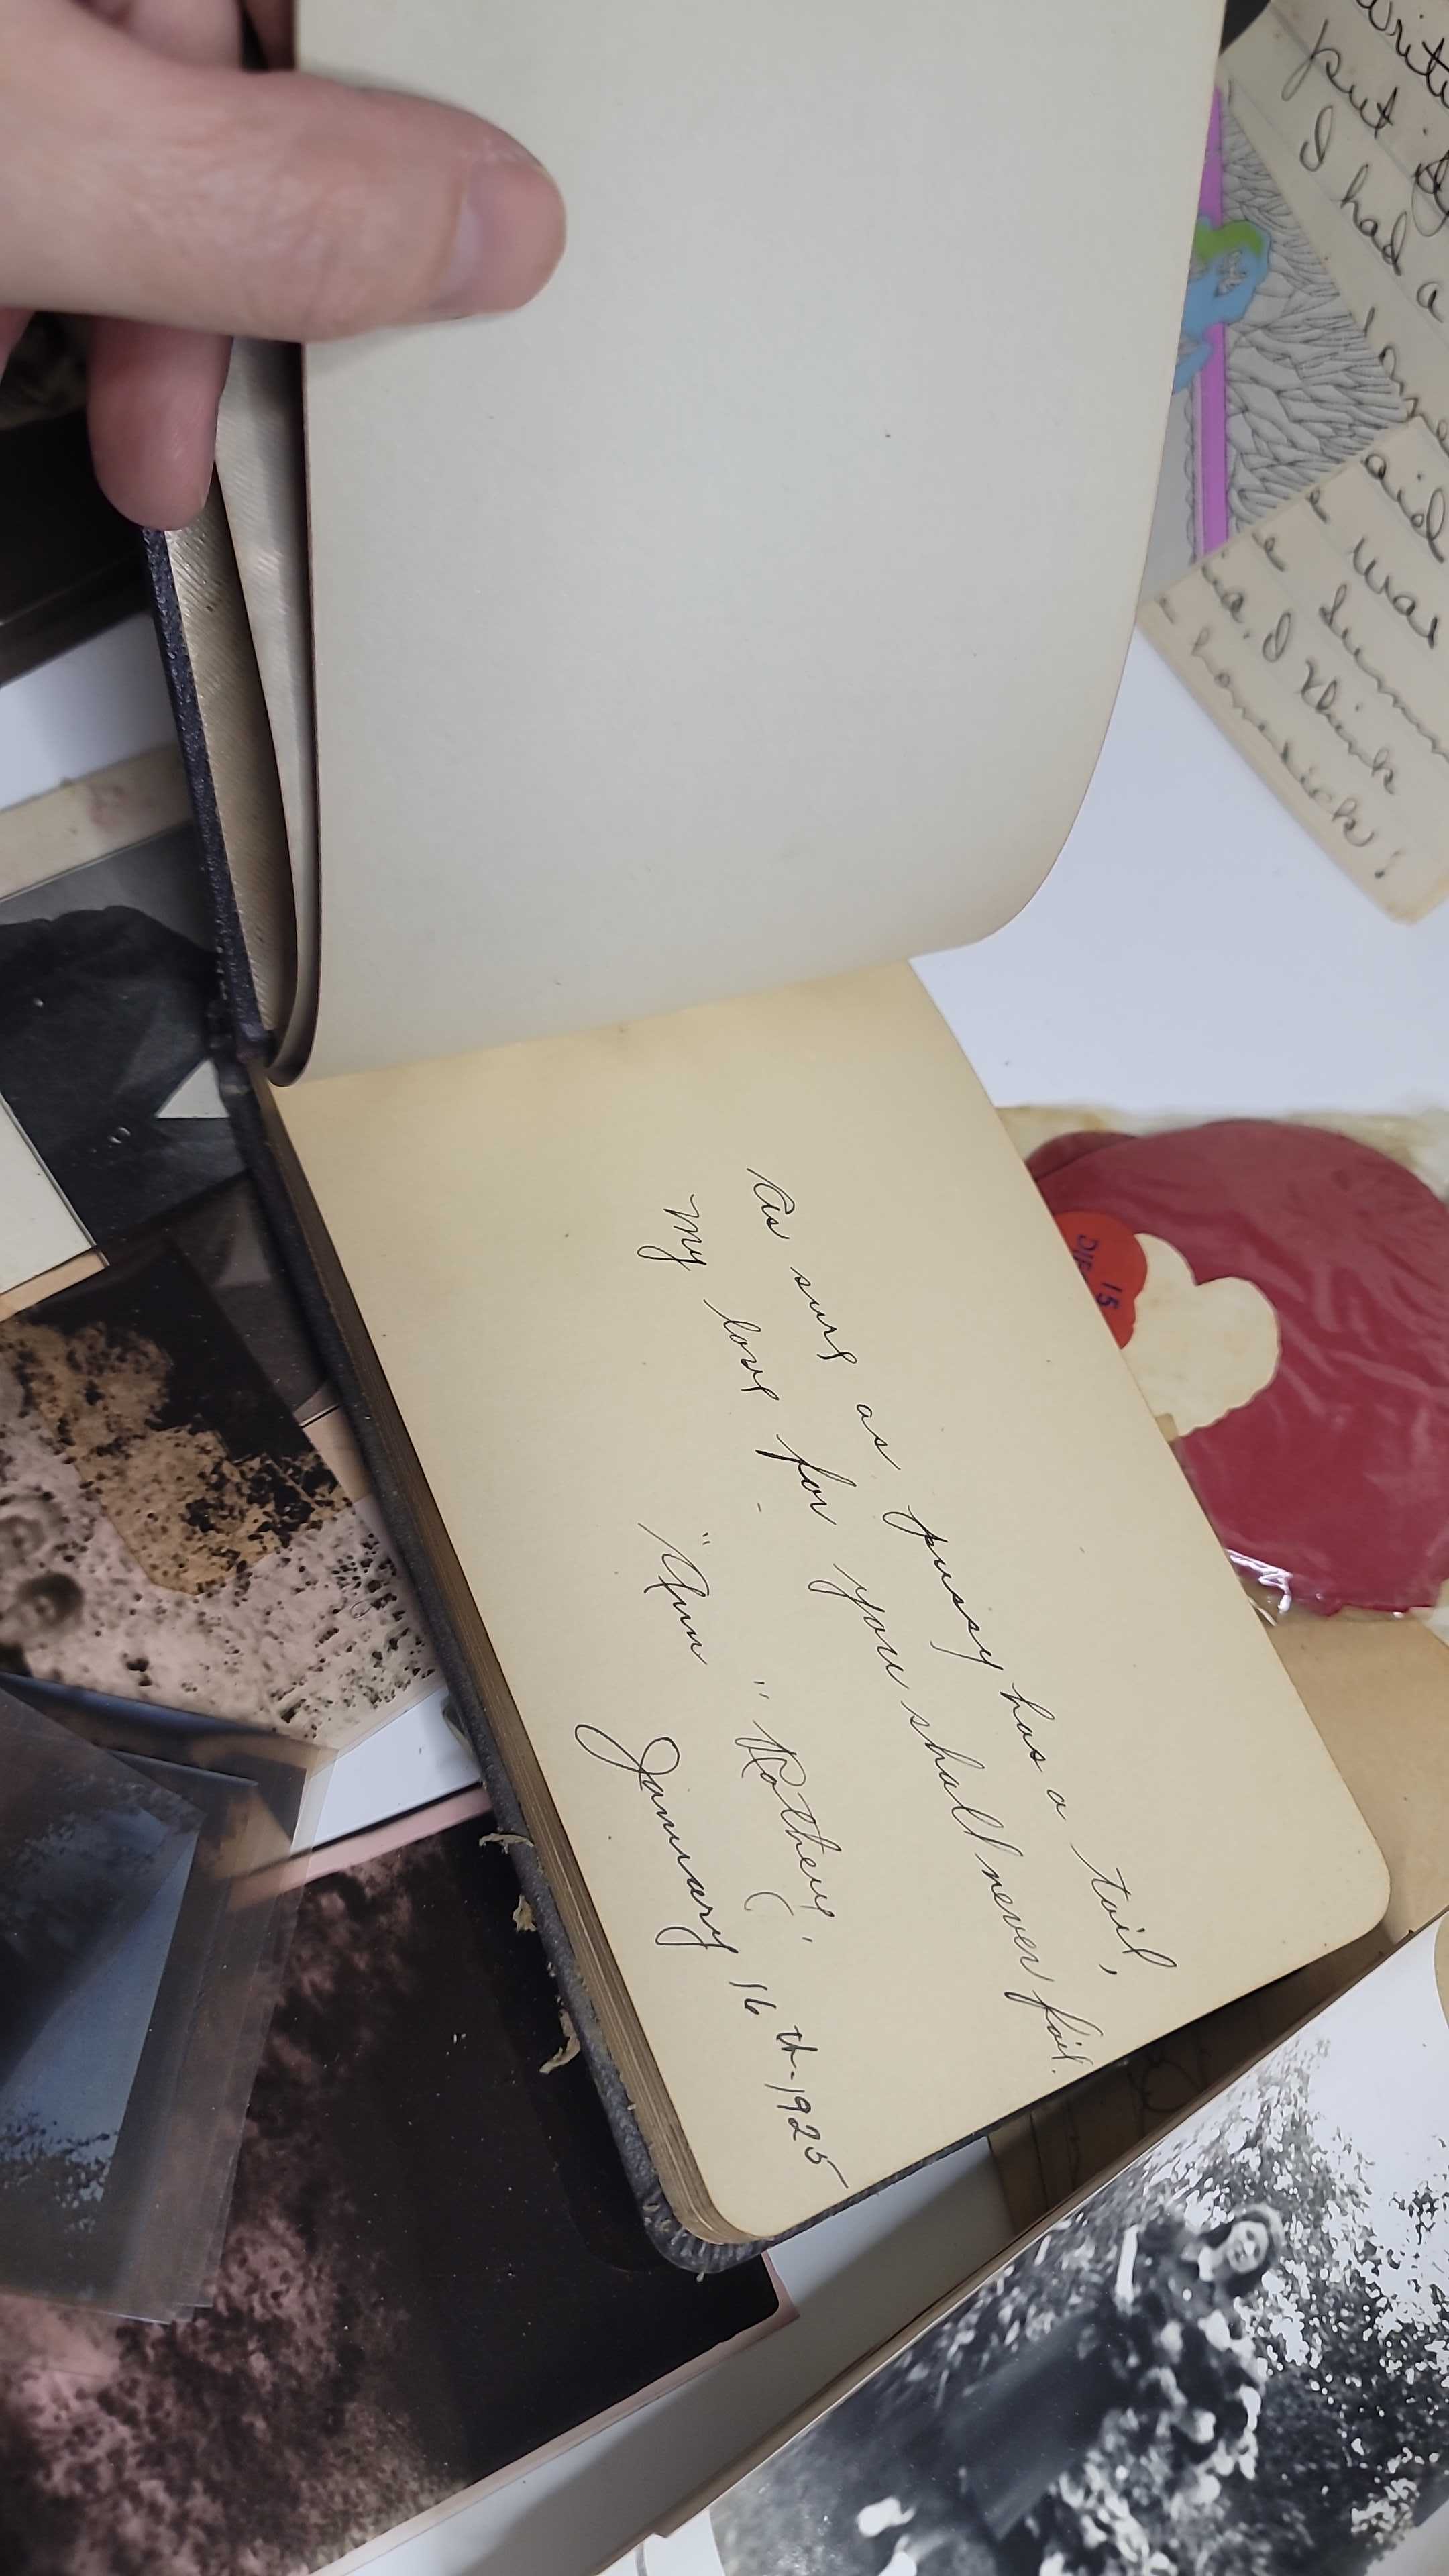 As sure as pussy has a tail,
My love for you shall never fail.
January 16th - 1925
put
I had a
aid
was
I think
homesick;
15